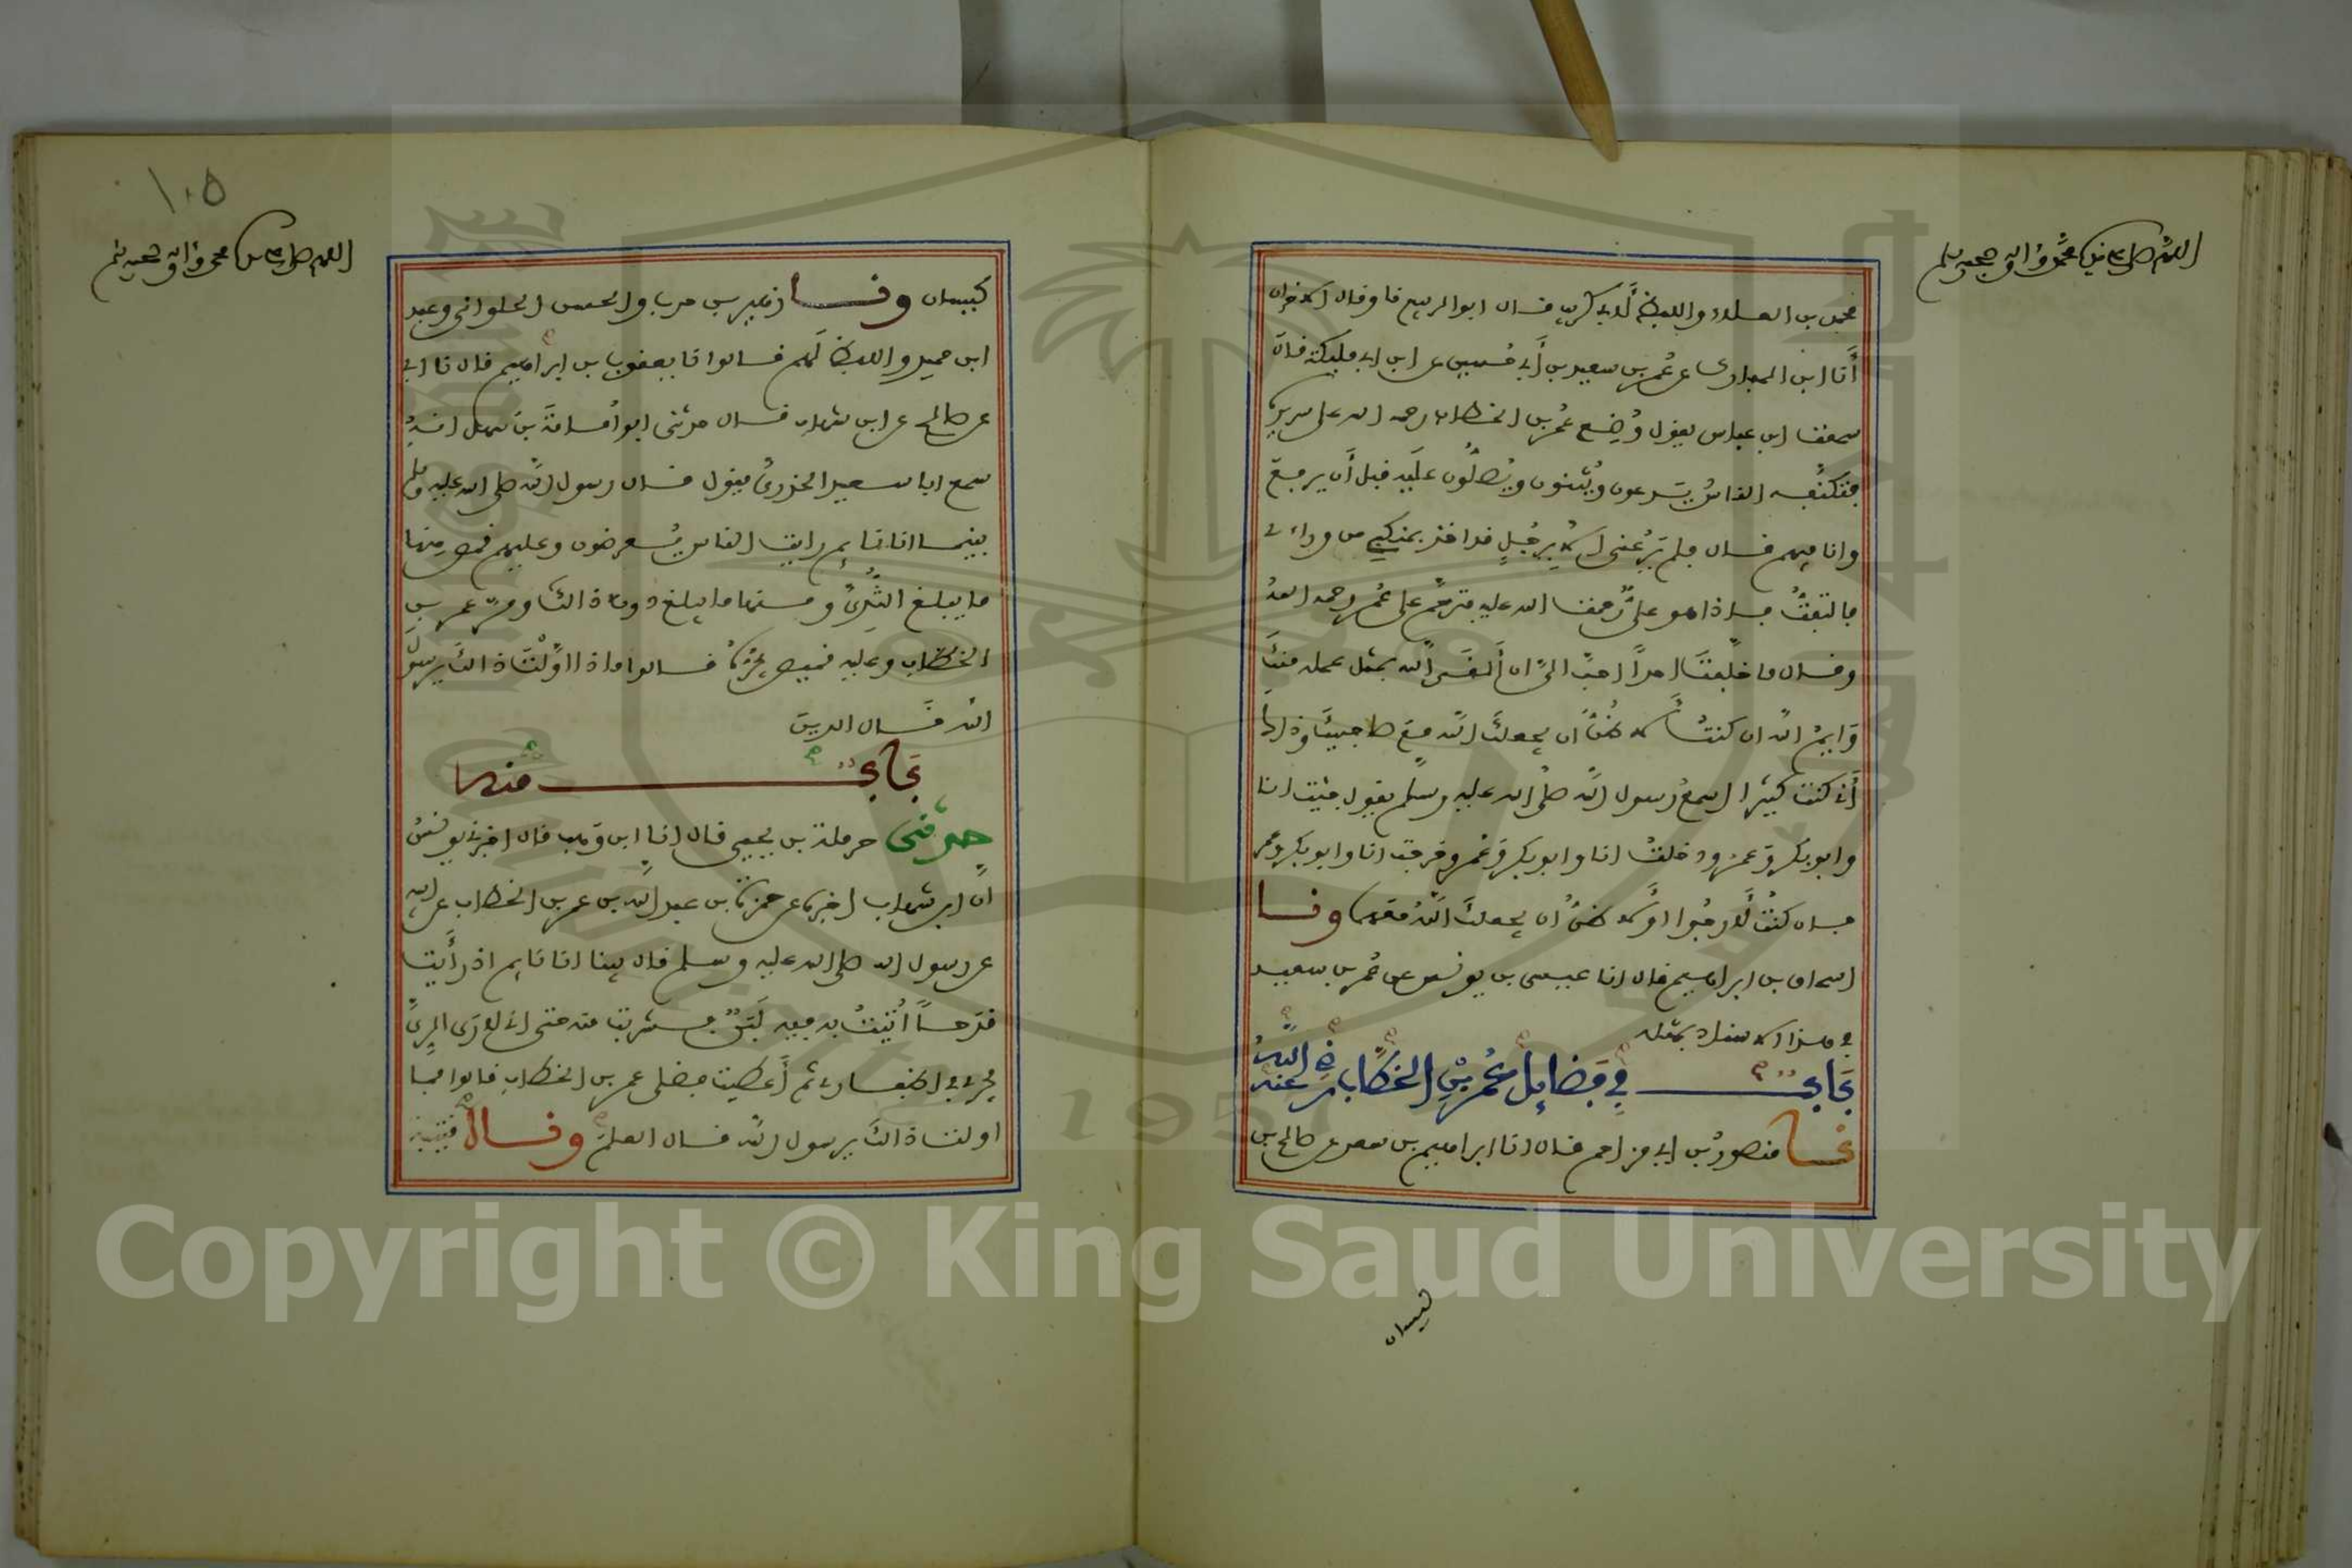 اللهم صل على سيدنا محمد وآله وصحبه وسلم
محمد بن العلاء واللفظ لأبي كريب قال ابو الربيع نا وقال الاخران
أنا ابن المبارك عن عمر بن سعيد بن أبي حسين عن ابن ابي مليكة قال
سمعت ابن عباس يقول وُضِع عمر بن الخطاب رحمه الله على سريره
فتكنّفه الناس يدعون ويُثنون ويُصلّون عليه قبل أن يرفع
وانا فيهم قال فلم يَرُعني الا برجل قد اخذ بمنكبي من وراءي
فالتفتُّ فاذا هو عليٌّ رحمت الله عليه فترحّم على عمر رحمه الله
وقال ما خلّفتَ احداً احبّ اليّ ان ألقى الله بمثل عمله منك
وَايمُ الله ان كنتُ لأظنُّ ان يجعلك الله مع صاحبيك وذاك
أني كنت كثيرا اسمع رسول الله صلى الله عليه وسلم يقول جئت انا
وابو بكر وعمر ودخلت انا وابو بكر وعمر وخرجت انا وابو بكر وعمر
فان كنتُ لأرجوا او لأظنُّ ان يجعلك الله معهما ونا
اسحاق بن ابراهيم قال انا عيسى بن يونس عن عمر بن سعيد
في هذا الاسناد بمثله
باب في فضايل عمر بن الخطاب رضي الله عنه
نا منصور بن ابي مزاحم قال انا ابراهيم بن سعد عن صالح بن
كيسان
١٠٥
اللهم صل على سيدنا محمد وآله وصحبه وسلم
كيسان ونا زهير بن حرب والحسن الحلواني وعبد
ابن حميد واللفظ لهم قالوا نا يعقوب بن ابراهيم قال نا ابي
عن صالح عن ابن شهاب قال حدثني ابو أمامة بن سهل انه
سمع ابا سعيد الخدري يقول قال رسول الله صلى الله عليه وسلم
بينما انا نايم رايت الناس يُعرضون وعليهم قمص منها
ما يبلغ الثُّدِيَّ ومنها ما يبلغ دون ذالك ومرّ عمر بن
الخطاب وعليه قميص يجره قالوا ماذا اوّلت ذالك يرسول
الله قال الدين
باب منه
حدثني حرملة بن يحيى قال انا ابن وهب قال اخبرني يونس
انّ ابن شهاب اخبره عن حمزة بن عبد الله بن عمر بن الخطاب عن ابيه
عن رسول الله صلى الله عليه وسلم قال بينا انا نايم اذ رأيت
قدحاً أُتيتُ به فيه لبنٌ فشربت منه حتى اني لأرى الريَّ
يجري في اظفاري ثم أعطيت فضلي عمر بن الخطاب قالوا فما
اولت ذالك يرسول الله قال العلم وقال قتيبة
Copyright © King Saud University
1957